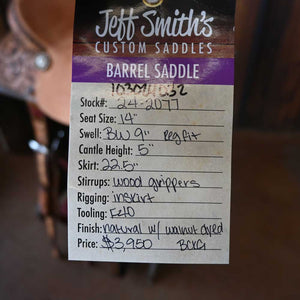 Jeff Smith's
CUSTOM SADDLES
BARREL SADDLE
Stock#: 24-2077
Seat Size: 14"
Swell: BW 9" Reg fit
Cantle Height: 5"
Skirt: 22.5"
Stirrups: wood grippers
Rigging: inskirt
Tooling:
Finish: natural w/ walnut dyed
Price: $3,950